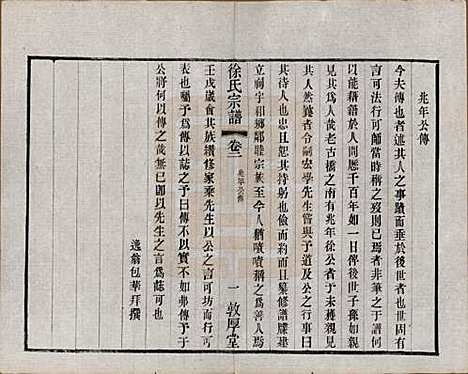 兆年公傳
今夫傳也者述其人之事蹟而垂於後世者也世固有
言可法行可師當時稱之歿則已焉者非筆之于譜何
以能藉藉於人間歷千百年如一日俾後世子孫如親
見其為人哉老古橋之南有兆年徐公者予未獲見
其人然嘗者令嗣宏學先生嘗與予道及公之行事曰
其待人也忠且恕其持躬也儉而約而且纂修譜牒建
立祠宇和鄉鄰睦宗族至今人猶嘖嘖稱之為善人焉
徐氏宗譜
卷二
兆年公傳
一
敦厚堂
壬戌歲會其族續修家乘先生以公之言可坊而行可
表也囑予為傳以誌之予曰傳不以實不如弗傳予
公將何以傳之哉無已即以先生之言為誌可也
逸翁包華拜撰